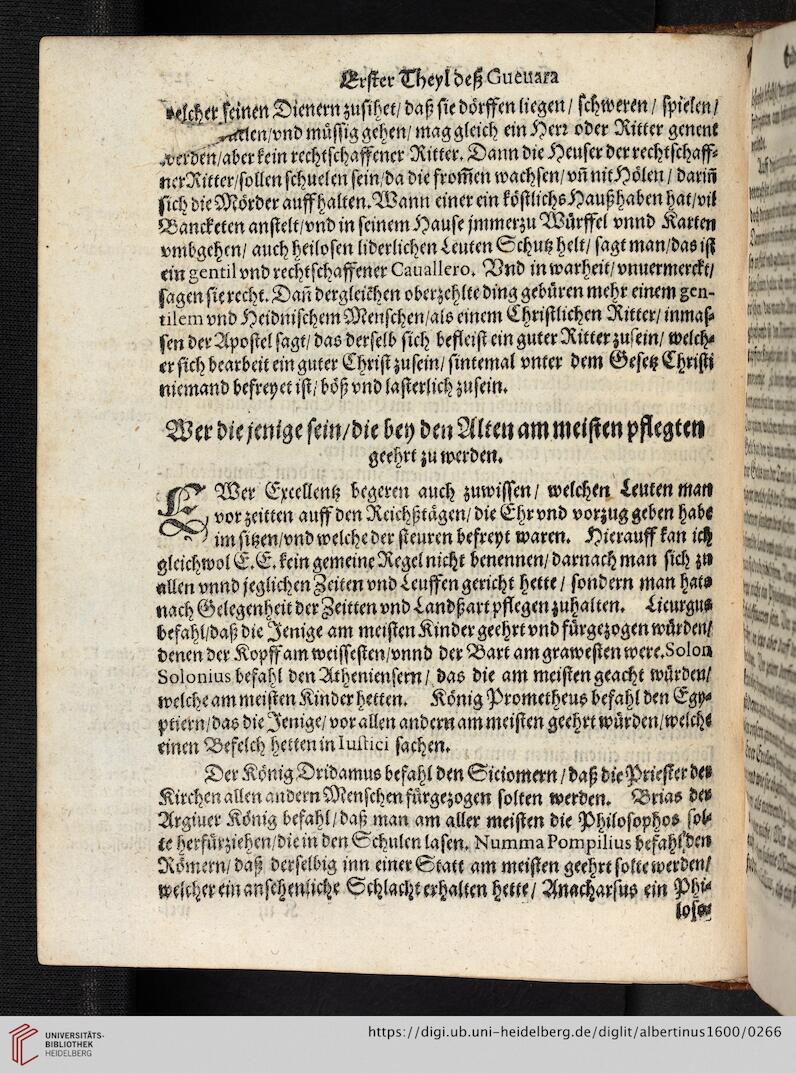 Erster Theyl deß Gueuara
welcher seinen Dienern zusihet/ daß sie dörffen liegen/ schweren/ spielen/
vnd müssig gehen/ mag gleich ein Herr oder Ritter genent
werden/ aber kein rechtschaffener Ritter. Dann die Heuser der rechtschaff-
ner Ritter/ sollen schuelen sein/ da die from̃en wachsen/ vn̄ nit Hölen/ darin̄
sich die Mörder auffhalten. Wann einer ein köstlichs Haußhaben hat/ vil
Bancketen anstelt/ vnd in seinem Hause jmmerzu Würffel vnnd Karten
vmbgehen/ auch heilosen liderlichen Leuten Schutz helt/ sagt man/ das ist
ein gentil vnd rechtschaffener Cauallero. Vnd in warheit/ vnuermerckt/
sagen sie recht. Dan̄ dergleichen oberzehlte ding gebüren mehr einem gen-
tilem vnd Heidnischem Menschen/ als einem Christlichen Ritter/ inmaß-
sen der Apostel sagt/ das derselb sich befleist ein guter Ritter zusein/ welch-
er sich bearbeit ein guter Christ zusein/ sintemal vnter dem Gesetz Christi
niemand befreyet ist/ böß vnd lasterlich zusein.
Wer die jenige sein/ die bey den Alten am meisten pflegten
geehrt zu werden.
EWer Excellentz begeren auch zuwissen/ welchen Leuten man
vor zeitten auff den Reichßtägen/ die Ehr vnd vorzug geben habe
im sitzen/ vnd welche der steuren befreyt waren. Hierauff kan ich
gleichwol E. E. kein gemeine Regel nicht benennen/ darnach man sich zu
allen vnnd jeglichen Zeiten vnd Leuffen gericht hette/ sondern man hats
nach Gelegenheit der Zeitten vnd Landßart pflegen zuhalten. Licurgus
befahl/ daß die Jenige am meisten Kinder geehrt vnd fürgezogen würden/
denen der Kopff am weissesten/ vnnd der Bart am grawesten were. Solon
Solonius befahl den Atheniensern/ das die am meisten geacht würden/
welche am meisten Kinder hetten. König Prometheus befahl den Egy-
ptiern/ das die Jenige/ vor allen andern am meisten geehrt würden/ welche
einen Befelch hetten in Iustici sachen.
Der König Dridamus befahl den Siciomern/ daß die Priester der
Kirchen allen andern Menschen fürgezogen solten werden. Brias der
Argiuer König befahl/ daß man am aller meisten die Philosophos sol-
te herfürziehen/ die in den Schulen lasen. Numma Pompilius befahl den
Römern/ daß derselbig inn einer Statt am meisten geehrt solte werden/
welcher ein ansehenliche Schlacht erhalten hette/ Anacharsus ein Phi-
loso-
UNIVERSITÄTS-
BIBLIOTHEK
HEIDELBERG
https://digi.ub.uni-heidelberg.de/diglit/albertinus1600/0266